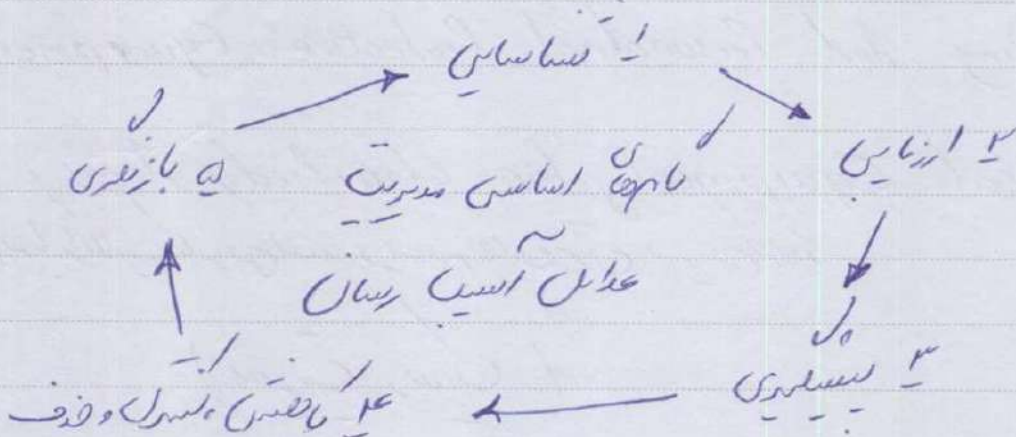 ۱ـ شناسایی
۲ـ ارزیابی
۳ـ پیشگیری
۴ـ کاهش، کنترل و حذف
۵ـ بازنگری
گامهای اساسی مدیریت
عوامل آسیب رسان